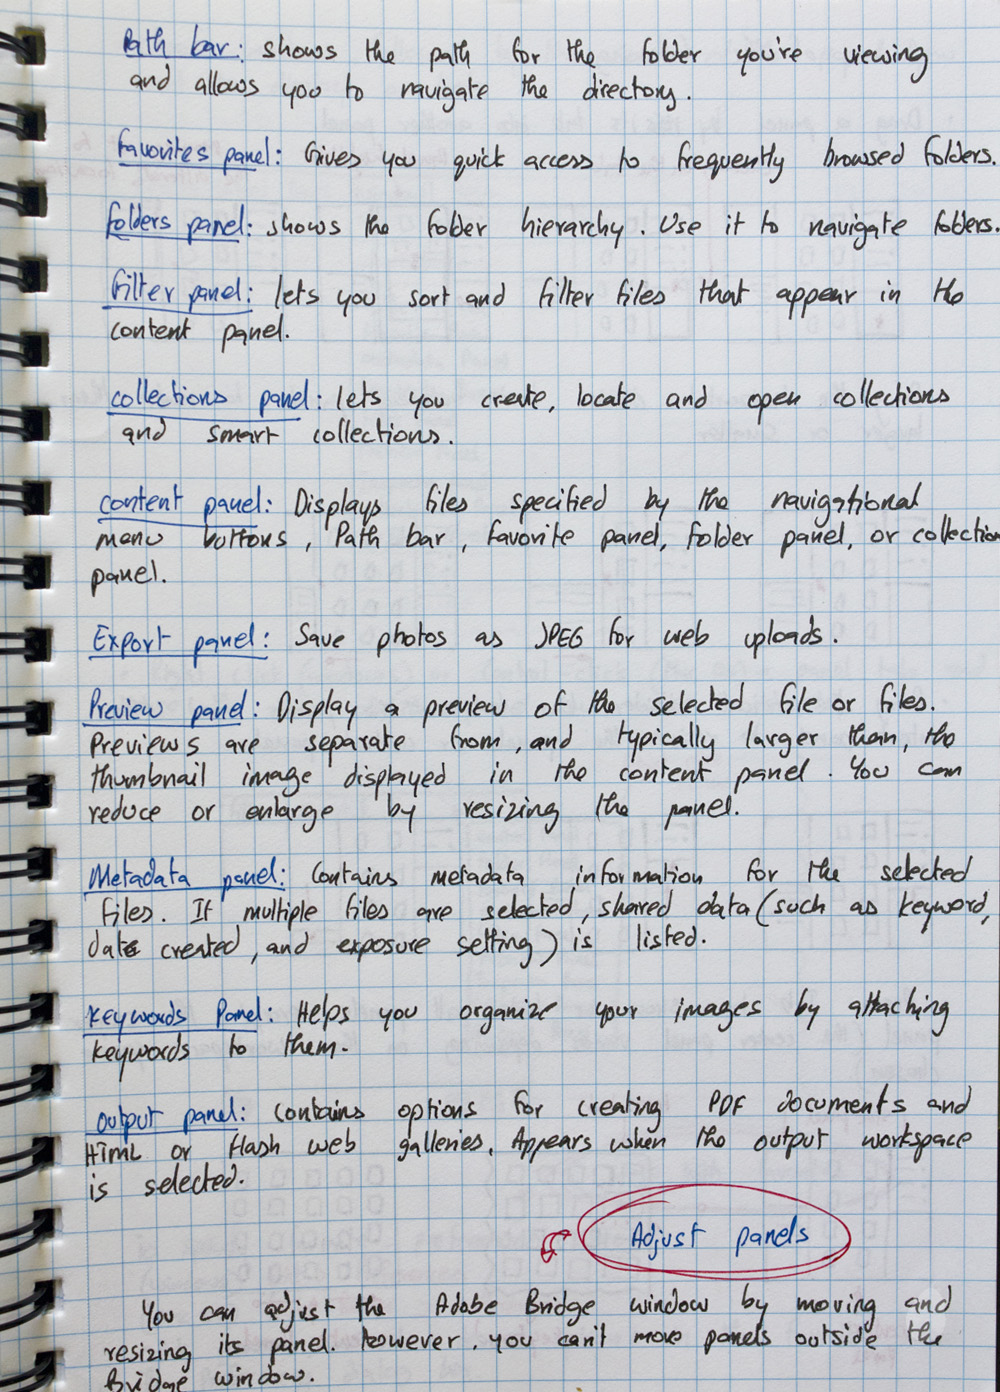 Path bar: shows the path for the folder you're viewing
and allows you to navigate the directory.
Favorites panel: Gives you quick access to frequently browsed folders.
Folders panel: shows the folder hierarchy. Use it to navigate folders.
Filter panel: lets you sort and filter files that appear in the
content panel.
collections panel: lets you create, locate and open collections
and smart collections.
content panel: Displays files specified by the navigational
menu buttons, Path bar, favorite panel, folder panel, or collection
panel.
Export panel: Save photos as JPEG for web uploads.
Preview panel: Display a preview of the selected file or files.
Previews are separate from, and typically larger than, the
thumbnail image displayed in the content panel. You can
reduce or enlarge by resizing the panel.
Metadata panel: Contains metadata information for the selected
files. If multiple files are selected, shared data (such as keyword,
date created, and exposure setting) is listed.
keywords Panel: Helps you organize your images by attaching
keywords to them.
output panel: contains options for creating PDF documents and
HTML or Flash web galleries. Appears when the output workspace
is selected.
Adjust panels
You can adjust the Adobe Bridge window by moving and
resizing its panel. However, you can't move panels outside the
Bridge window.